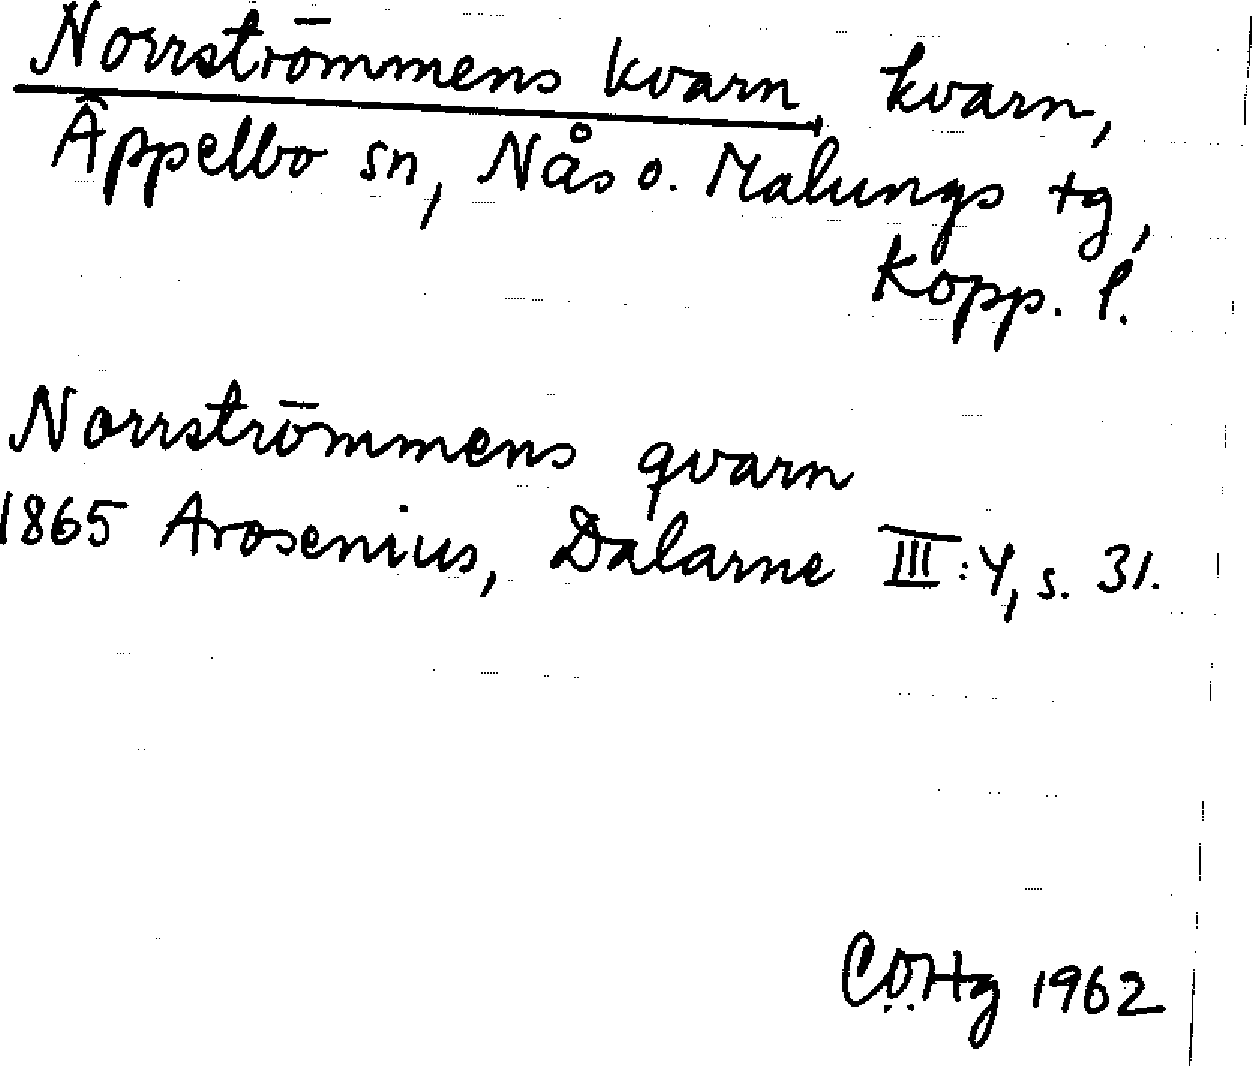 Norrströmmens kvarn, kvarn,
Äppelbo sn, Nås o. Malungs tg,
Kopp. l.
Norrströmmens qvarn
1865 Arosenius, Dalarne III:4, s. 31.
1962